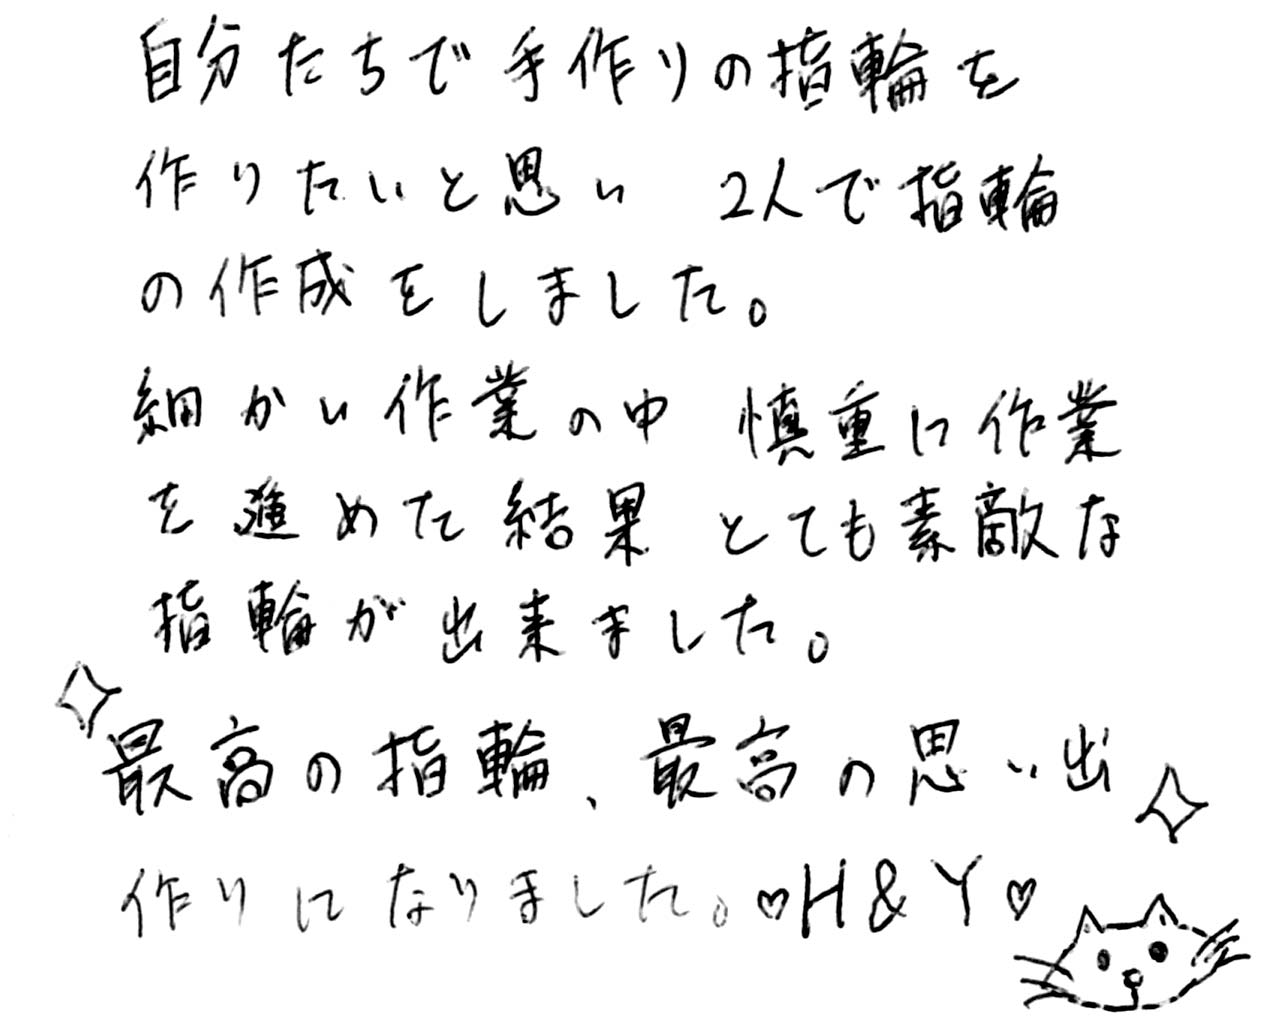 自分たちで手作りの指輪を
作りたいと思い 2人で指輪
の作成をしました。
細かい作業の中 慎重に作業
を進めた結果 とても素敵な
指輪が出来ました。
最高の指輪、最高の思い出
作りになりました。♡H&Y♡